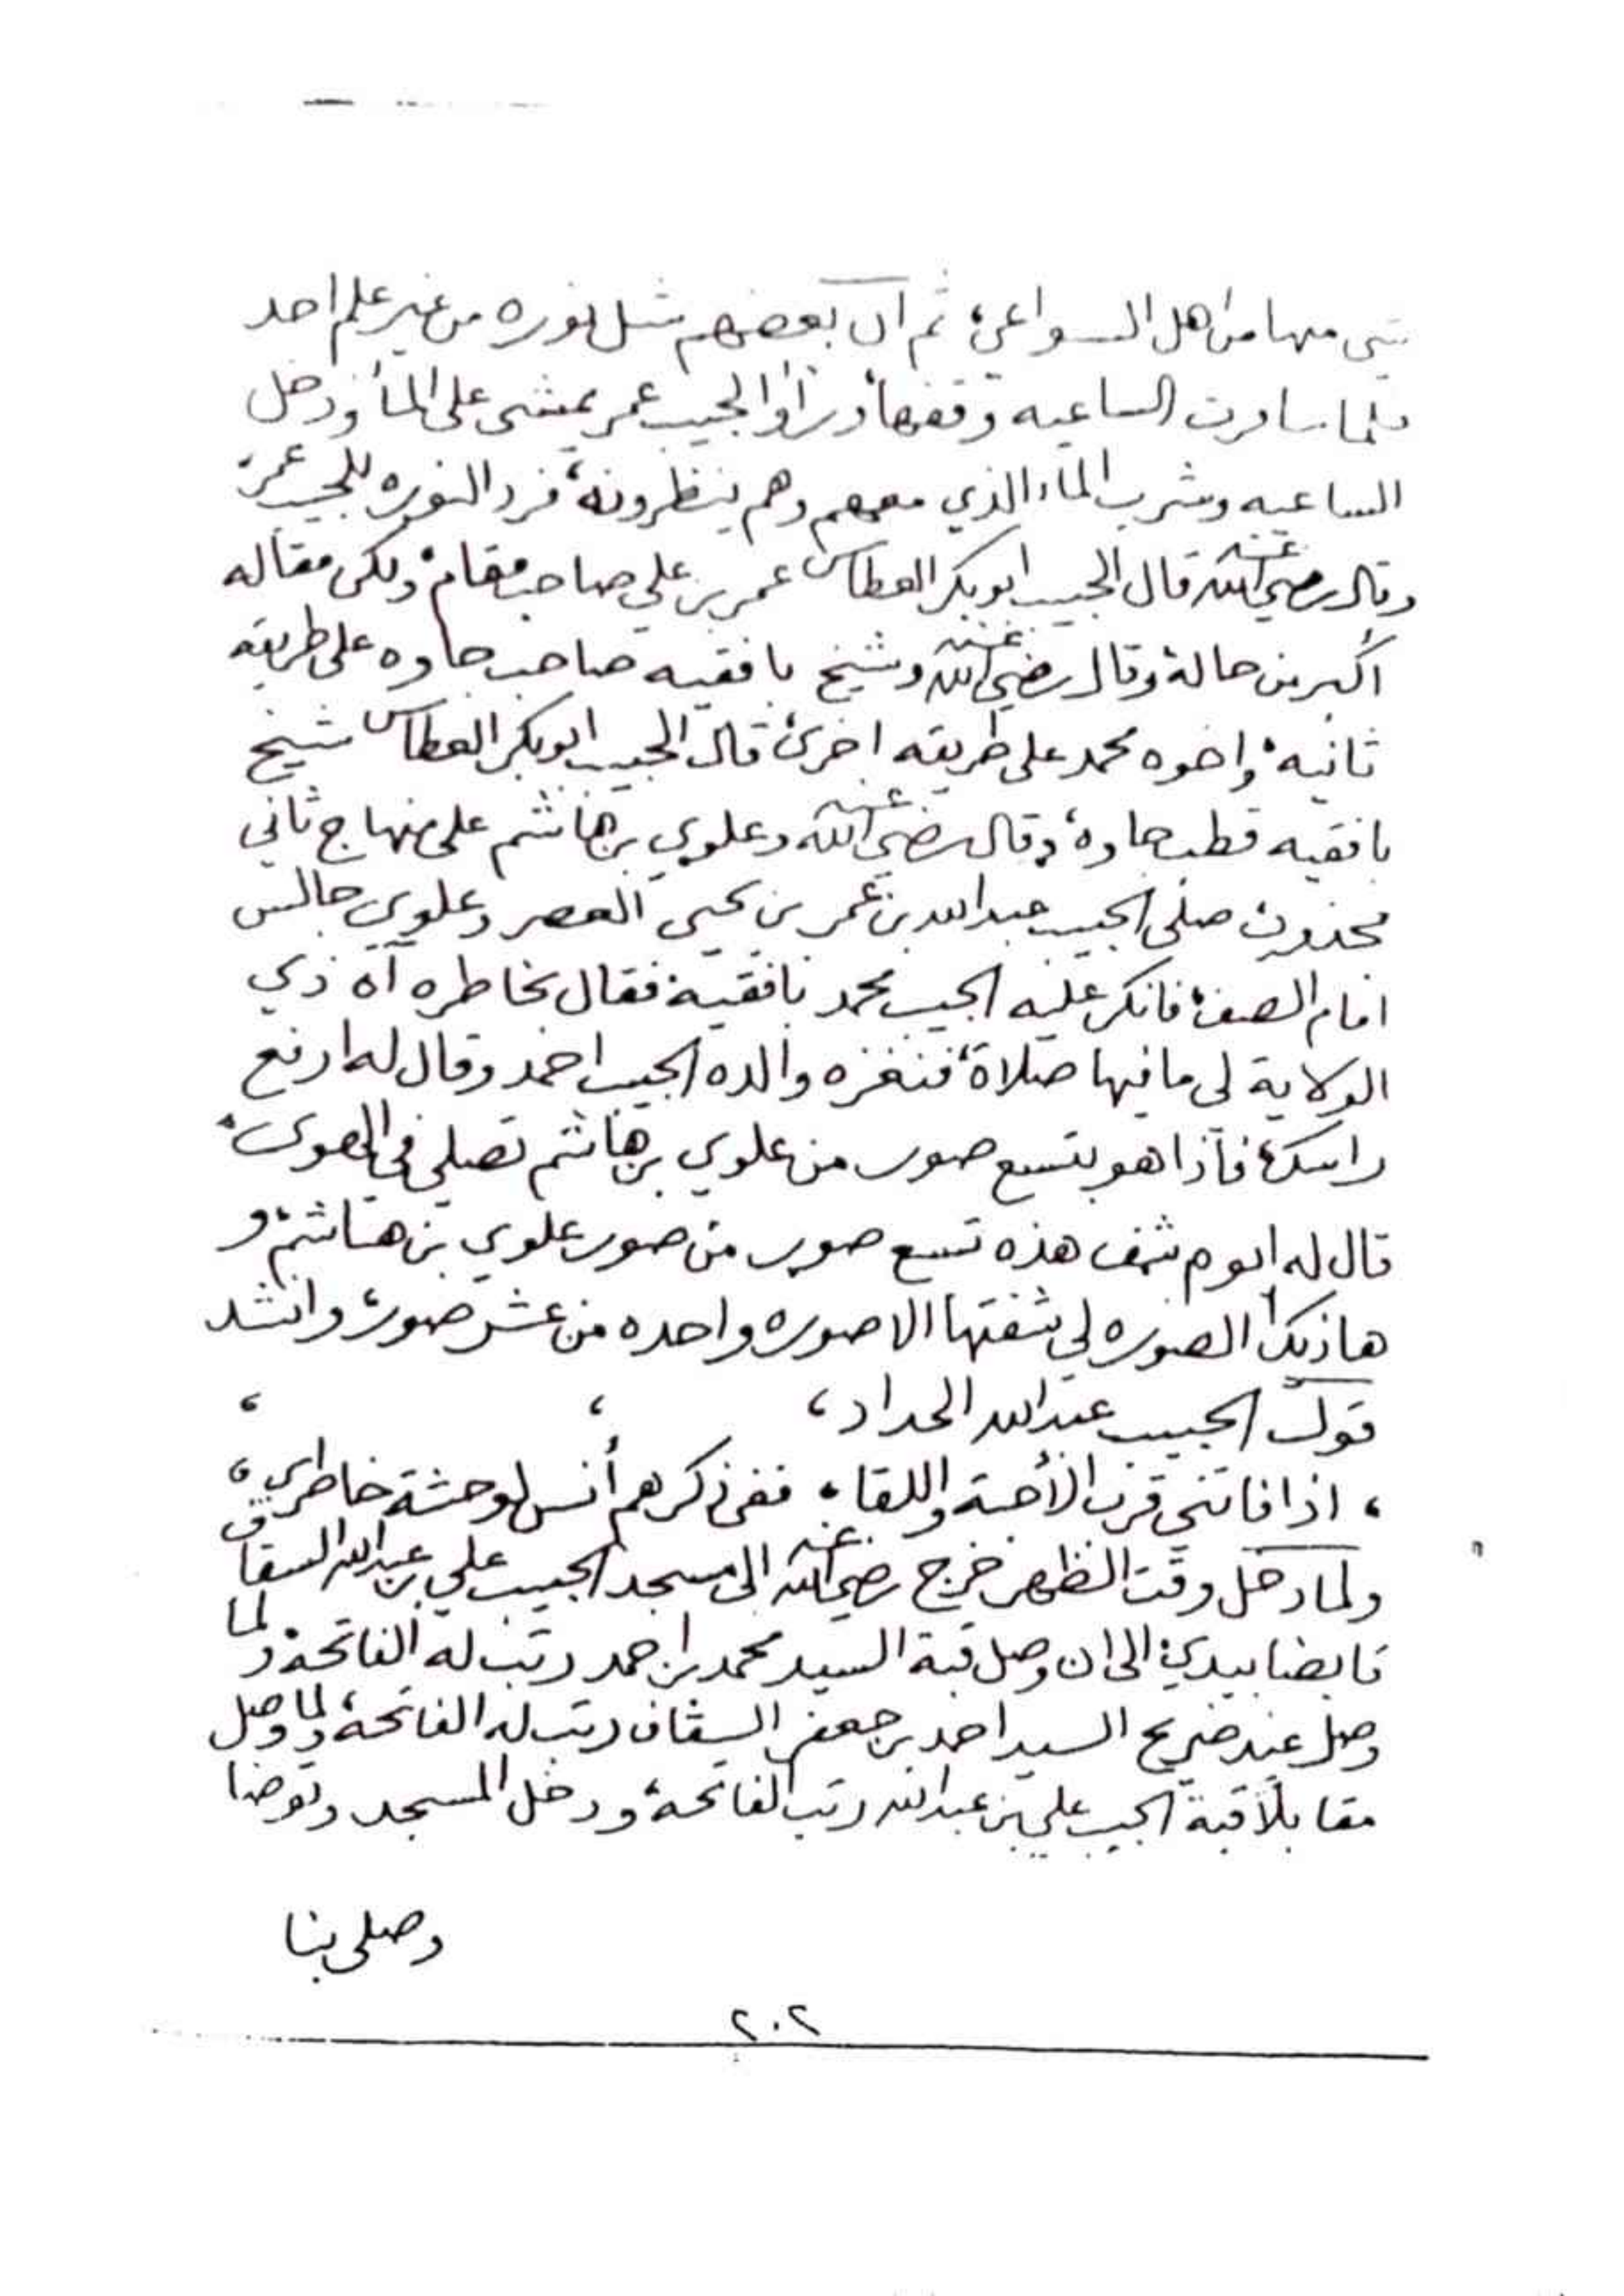 شي منها من اهل السواعي، ثم ان بعضهم شل نوره من غير علم احد
فلما سافرت الساعيه وقفها، ورأوا الحبيب عمر يمشي على الماء ودخل
الساعيه وشرب الماء الذي معهم وهم ينظرونه، فرد النوره للحبيب عمر،
وقال رضي الله عنه قال الحبيب ابوبكر العطاس عمر بن علي صاحب مقام، ولكن مقاله
أكبر من حاله، وقال رضي الله عنه وشيخ بافقيه صاحب جاوه على طريقه
ثانيه، واخوه محمد على طريقه اخرى، قال الحبيب ابوبكر العطاس شيخ
بافقيه قطب جاوه، وقال رضي الله عنه وعلوي بن هاشم على منهاج ثاني
مجذوب صلى الحبيب عبدالله بن عمر بن يحيى العصر وعلوي جالس
امام الصف، فانكر عليه الحبيب محمد بافقيه، فقال بخاطره آه ذي
الولاية لي ما فيها صلاة، فنغزه والده الحبيب احمد وقال له ارفع
راسك، فاذا هو بتسع صور من علوي بن هاشم تصلي في الهوى،
قال له ابوه شف هذه تسع صور من صور علوي بن هاشم، و
هاذيك الصوره لي شفتها الا صوره واحده من عشر صور، وانشد
قول الحبيب عبدالله الحداد، ، ،
، اذا فاتني قرب الأحبة واللقا، ففي ذكرهم أنس لوحشة خاطري،
ولما دخل وقت الظهر خرج رضي الله عنه الى مسجد الحبيب علي بن عبدالله السقاف
قابضا بيدي، الى ان وصل قبة السيد محمد بن احمد رتب له الفاتحة، ولما
وصل عند ضريح السيد احمد بن جعفر السقاف رتب له الفاتحة، ولما وصل
مقابلاً قبة الحبيب علي بن عبدالله رتب الفاتحة، ودخل المسجد وتوضا
وصلى بنا
٢٠٢